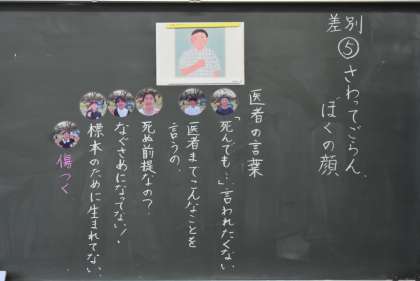 差別
⑤さわってごらん、
ぼくの顔
医者の言葉
「死んでも…」言われたくない
医者までこんなことを
言うの。
死ぬ前提なの？
なぐさめになってない！
標本のために生まれてない。
傷つく